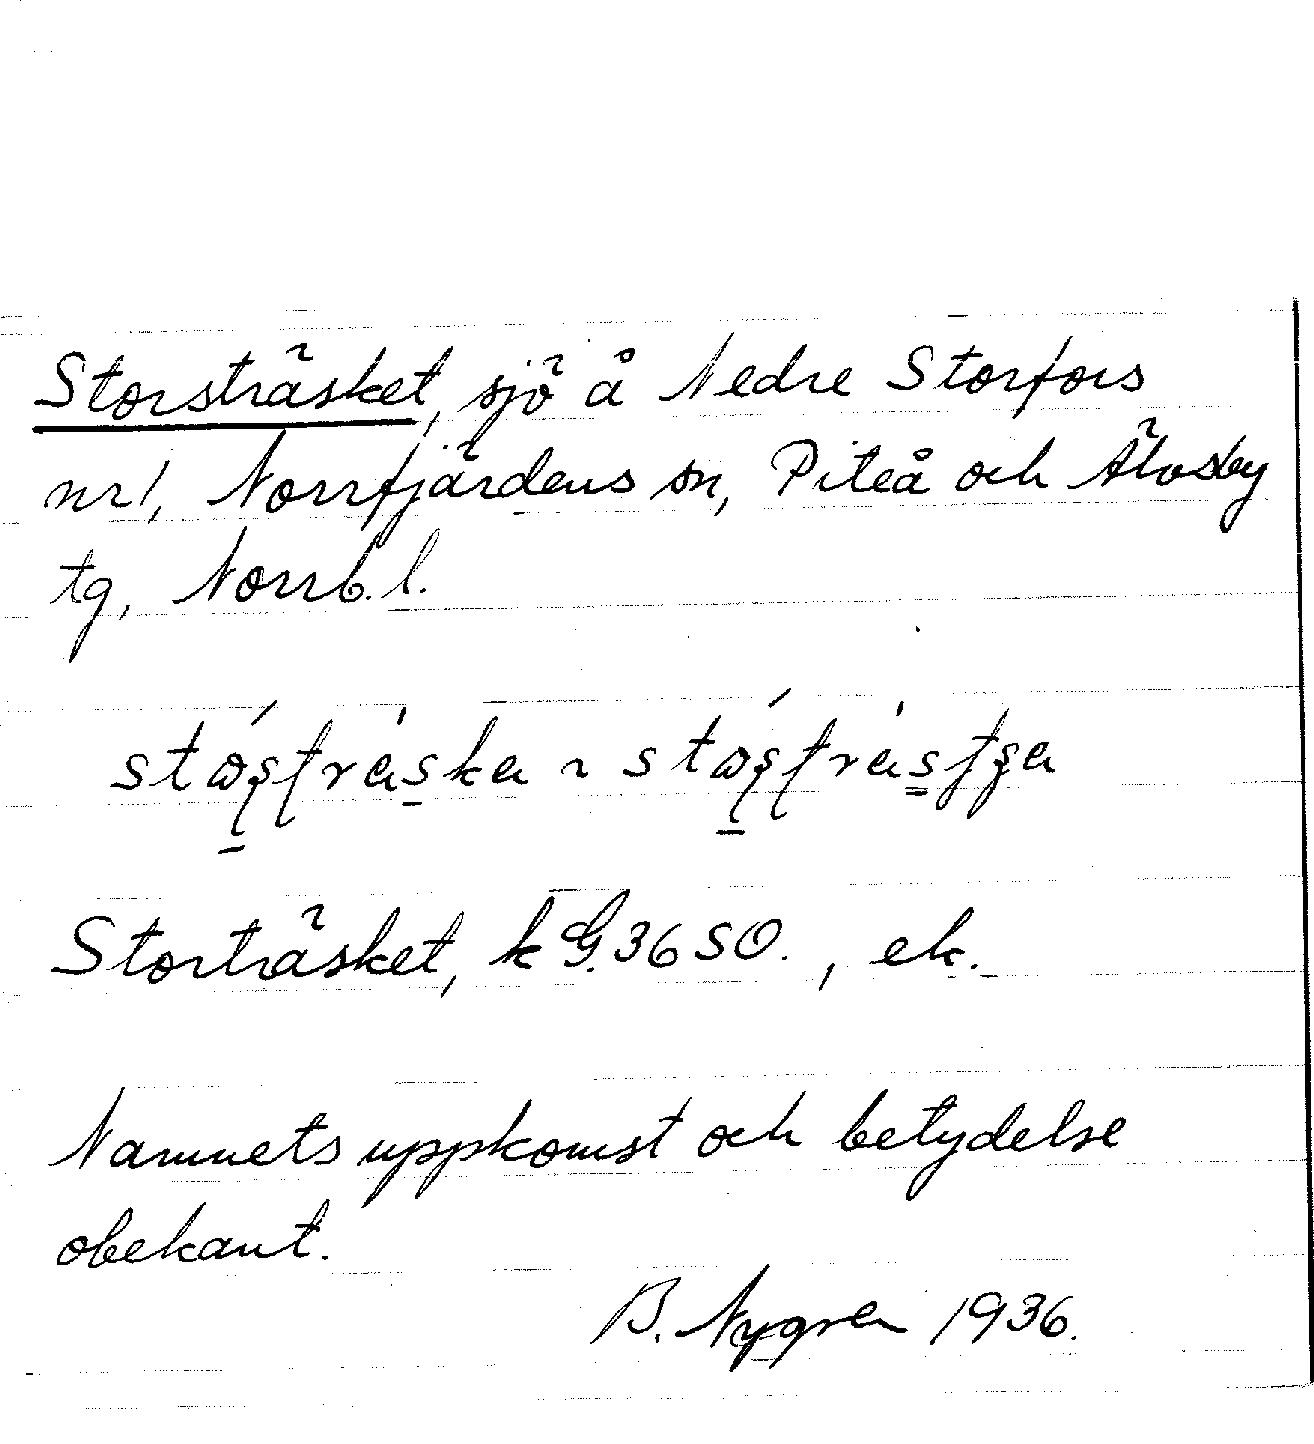 Storsträsket, sjö å Nedre Storfors
nr 1, Norrfjärdens sn, Piteå och Älvsby
tg, Norrb. l.
Storträsket, k G. 36 SO., ek.
Namnets uppkomst och betydelse
obekant.
B. Nygren 1936.